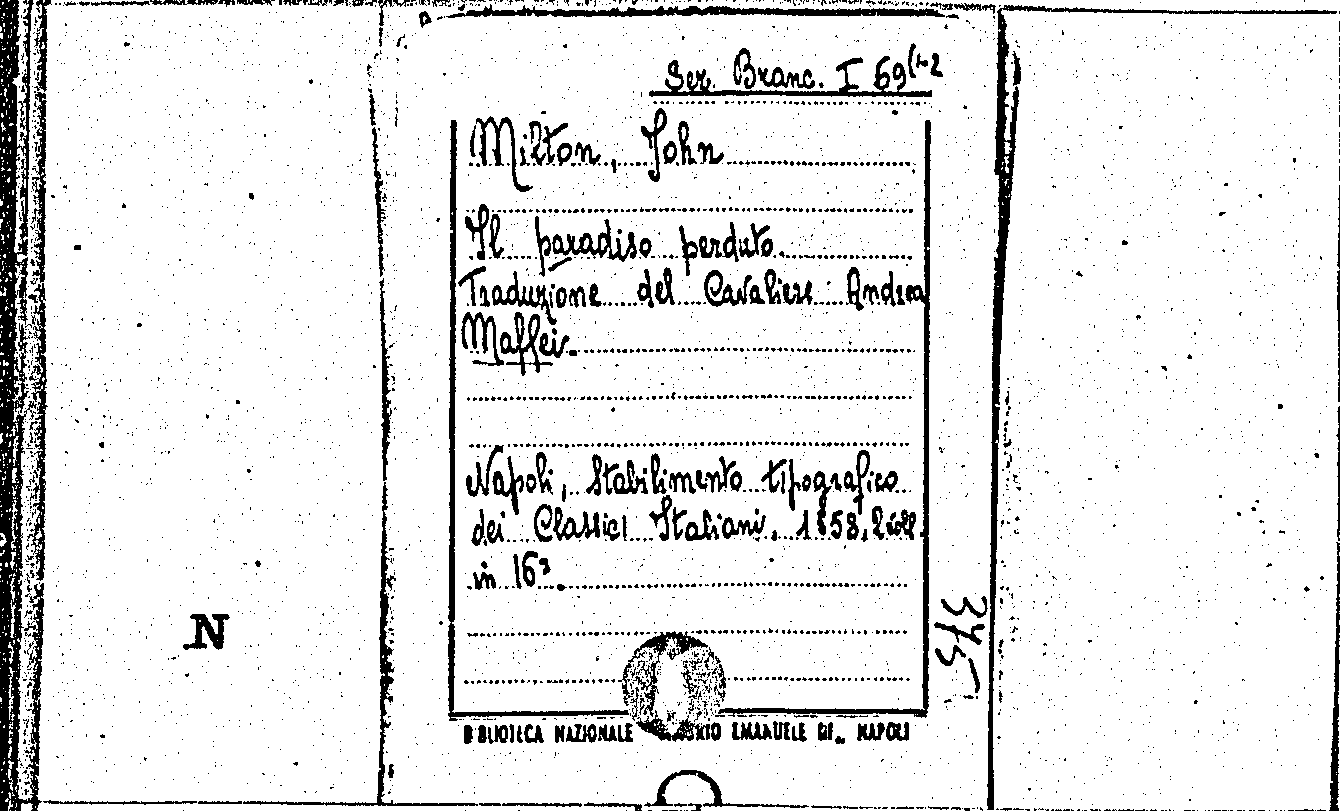 Ser. Branc. I 69(1-2
Milton, John
Il paradiso perduto.
Traduzione del Cavaliere Andrea
Maffei.
Napoli, Stabilimento tipografico
dei Classici Italiani, 1858, 2 voll.
in 16°.
N
345
BIBLIOTECA NAZIONALE EMANUELE III - NAPOLI